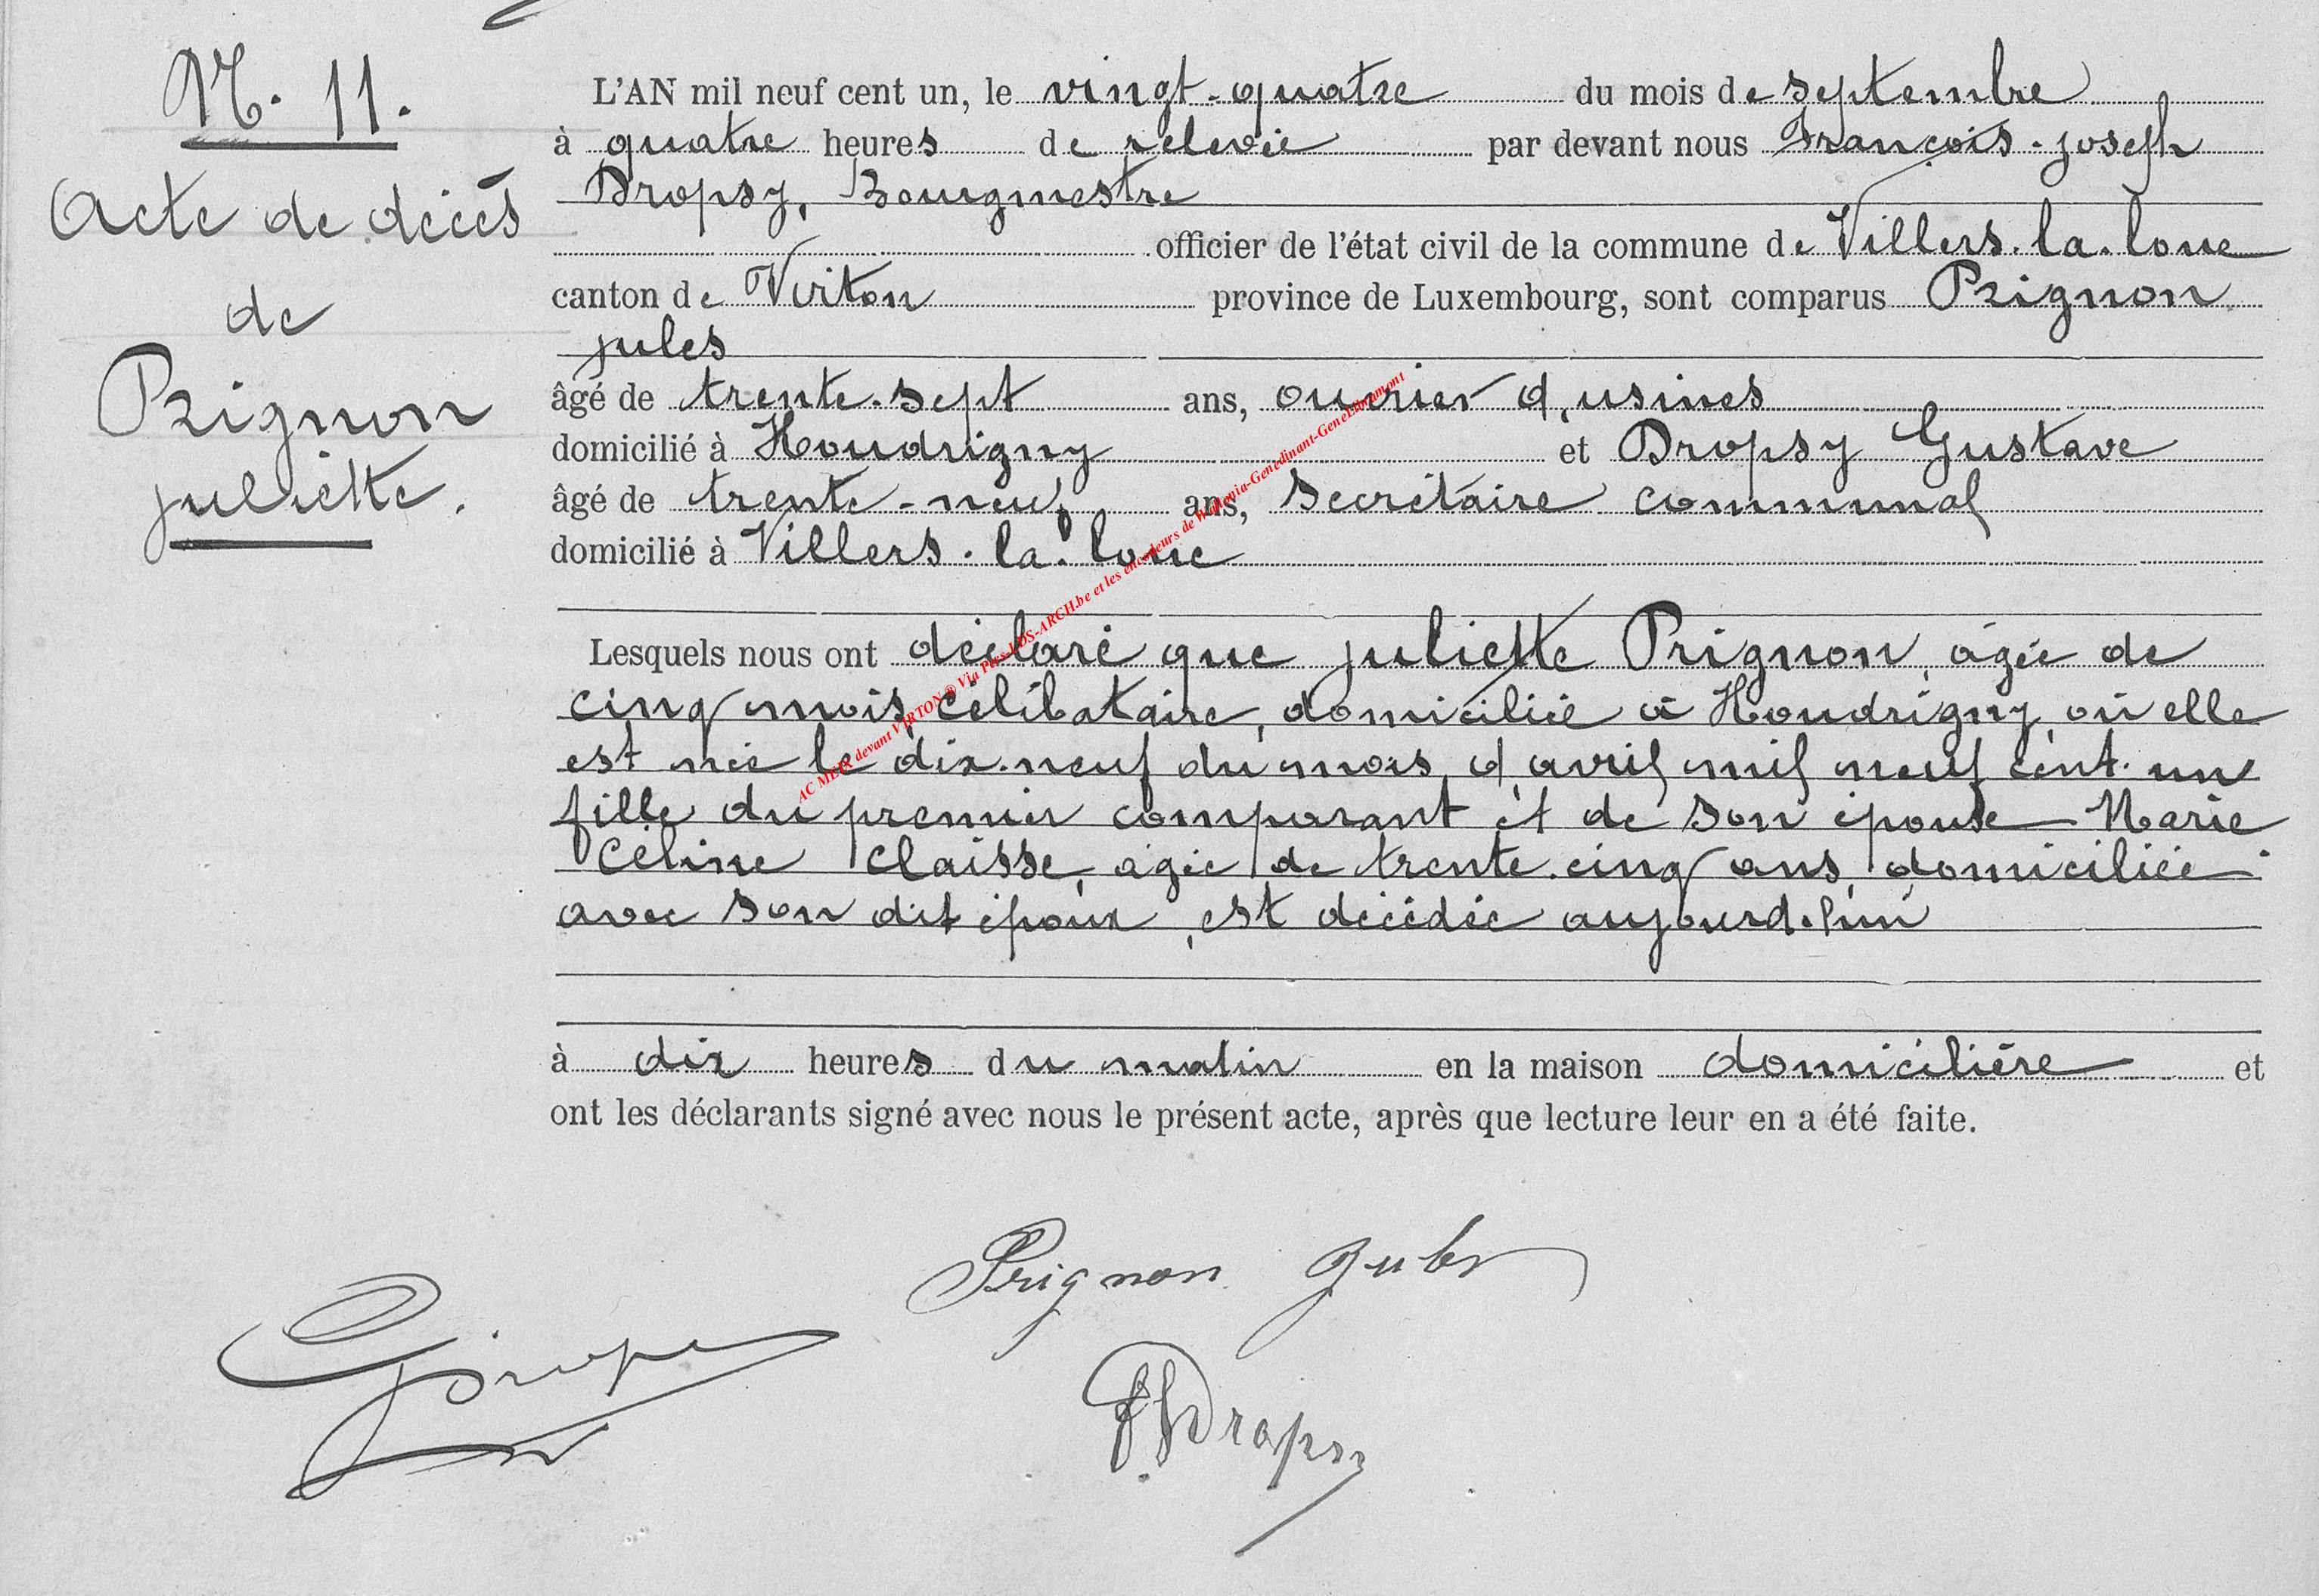 N. 11.
Acte de décès
de
Prignon
juliette.
L'AN mil neuf cent un, le vingt-quatre du mois de septembre
à quatre heures de relevée par devant nous François-joseph
Dropsy, Bourgmestre
officier de l'état civil de la commune de Villers-la-loue
canton de Virton province de Luxembourg, sont comparus Prignon
jules
âgé de trente-sept ans, ouvrier d'usines
domicilié à Houdrigny et Dropsy Gustave
âgé de trente-neuf ans, secrétaire communal
domicilié à Villers-la-loue
Lesquels nous ont déclaré que juliette Prignon, agée de
cinq mois, célibataire, domiciliée à Houdrigny où elle
est née le dix-neuf du mois d'avril mil neuf cent-un
fille du premier comparant et de son épouse Marie
Céline Claisse, agée de trente-cinq ans, domiciliée
avec son dit époux, est décédée aujourd'hui
à dix heures du matin en la maison domicilière et
ont les déclarants signé avec nous le présent acte, après que lecture leur en a été faite.
Prignon Jules
Dropsy
FJ Dropsy
AC MEIX devant VIRTON © Via Pers-LDS-ARCH.be et les encodeurs de Wallonia-Genedinant-GeneLibramont